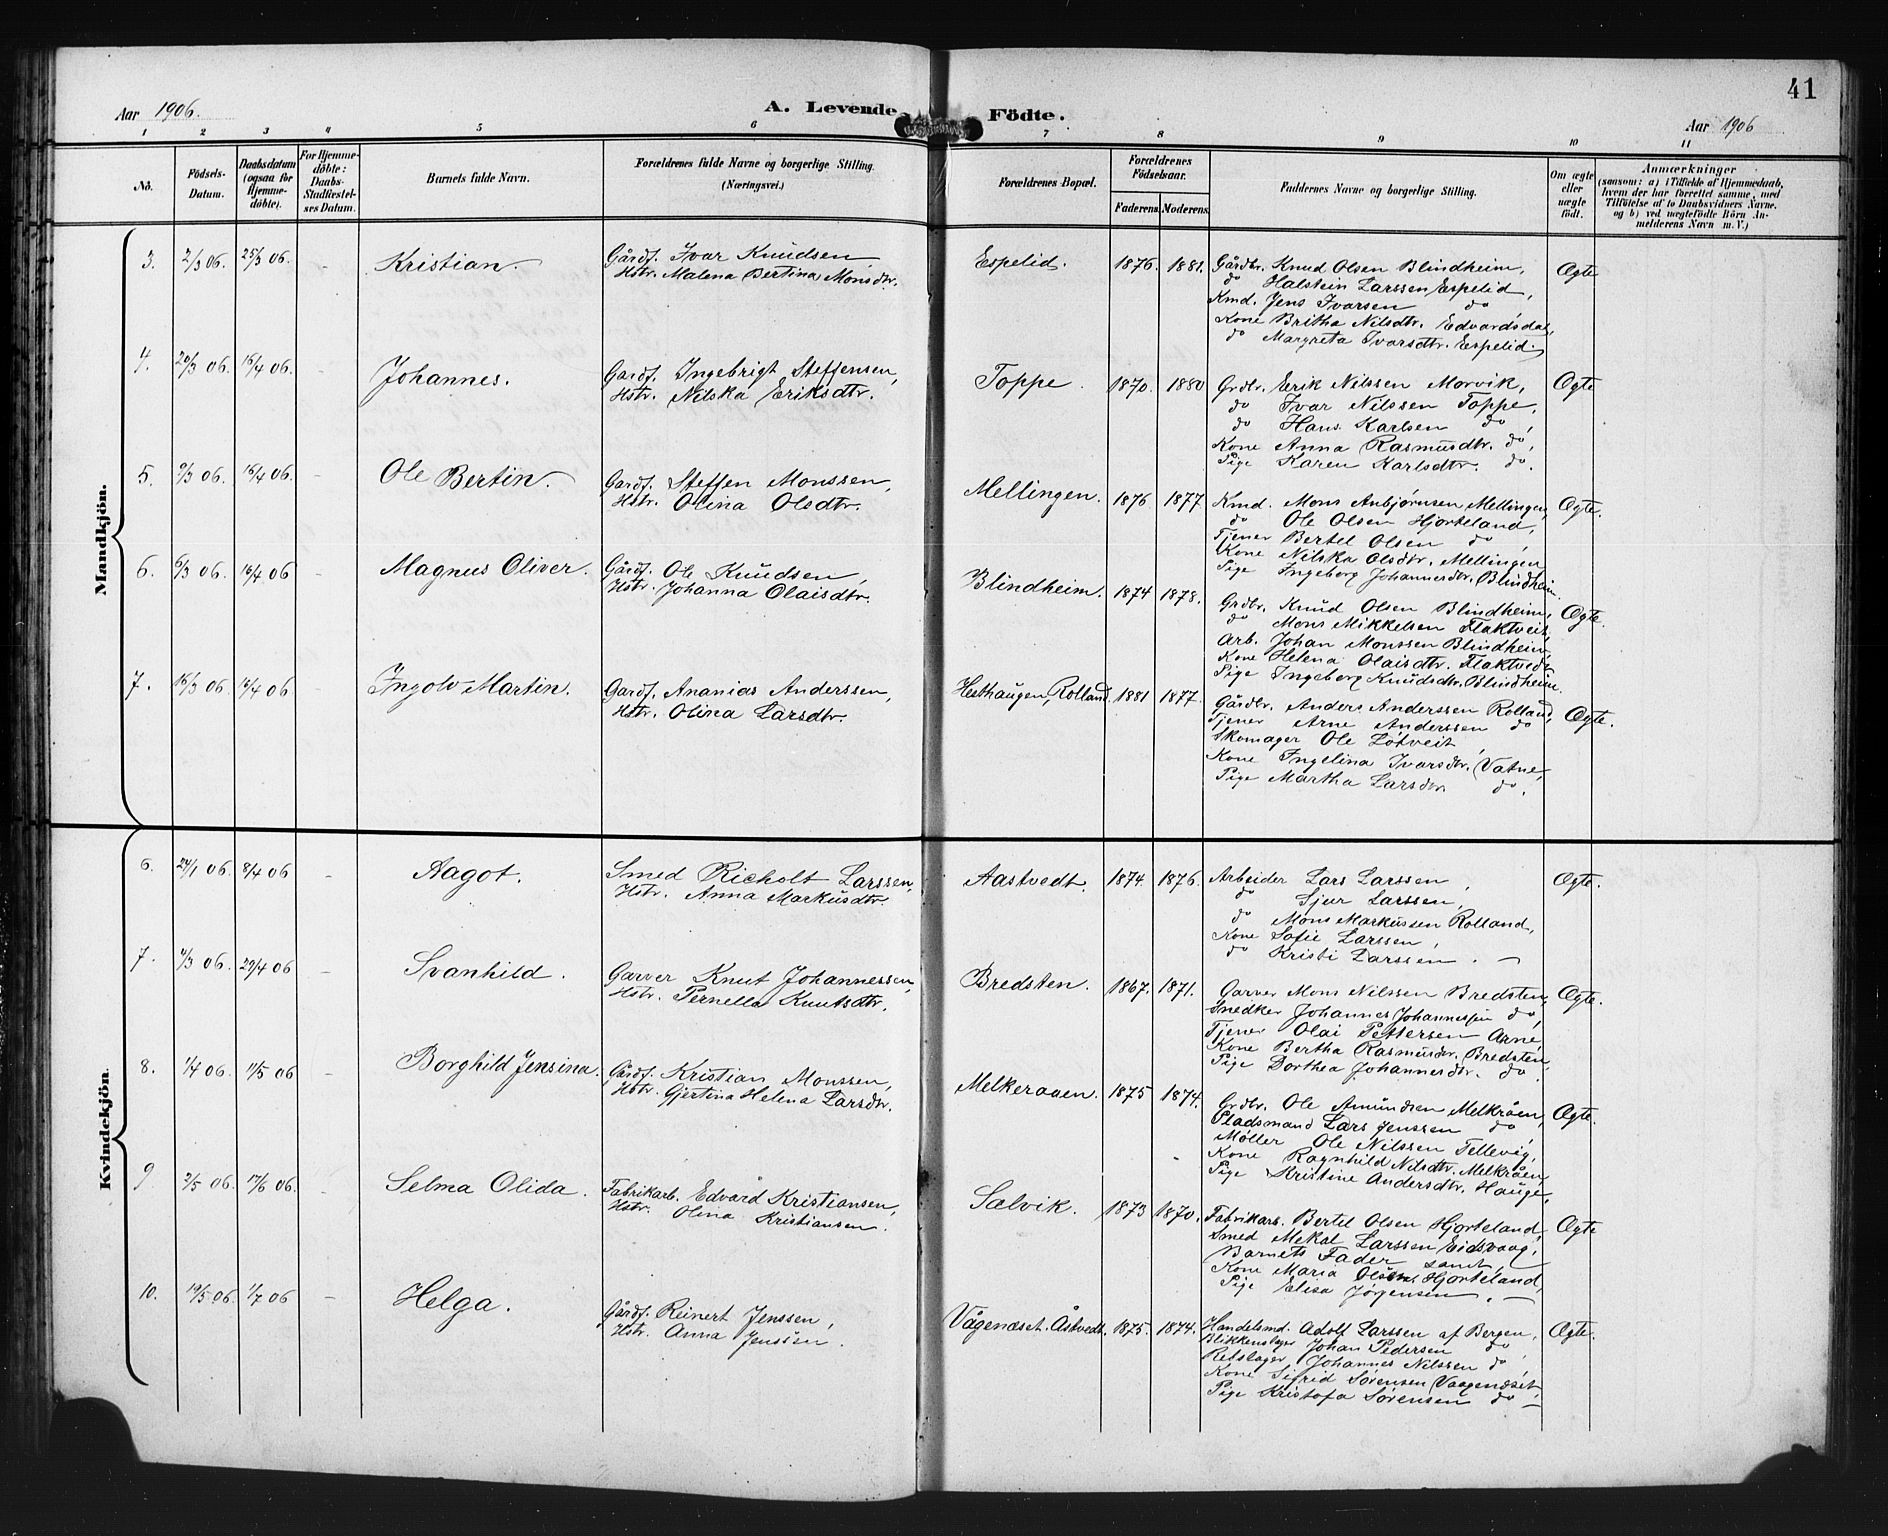 Aar 1906.
A. Levende Födte.
41
Aar 1906
1 2 3 4 5 6 7 8 9 10 11
No.
Födsels-Datum.
Daabsdatum (ogsaa for Hjemme-döbte).
For Hjemme-döbte: Daabs-Stadfæstel-ses Datum.
Barnets fulde Navn.
Forældrenes fulde Navne og borgerlige Stilling. (Næringsvei.)
Forældrenes Bopæl.
Forældrenes Födselsaar.
Faderens. Moderens.
Faddernes Navne og borgerlige Stilling.
Om ægte eller uægte födt.
Anmærkninger
(saasom: a) i Tilfælde af Hjemmedaab, hvem der har forrettet samme, med Tilföielse af to Daabsvidners Navne. og b) ved uægtefödte Börn An-melderens Navn m. V.)
Mandkjön.
3. 2/3 06. 25/3 06. - Kristian.
Gårdf. Ivar Knudsen
Hstr. Malena Bertina Monsdtr.
Espelid. 1876. 1881.
Gårdbr. Knud Olsen Blindheim,
do Halstein Larssen Espelid,
Kmd. Jens Ivarsen do,
Kone Britha Nilsdtr. Edvardsdal,
do Margreta Ivarsdtr. Espelid.
Ægte
4. 20/3 06. 16/4 06. - Johannes.
Gardf. Ingebrigt Steffensen,
Hstr. Nilska Eriksdtr.
Toppe. 1870. 1880
Grdbr. Erik Nilssen Morvik,
do Ivar Nilssen Toppe,
do Hans Karlsen do,
Kone Anna Rasmusdtr. do,
Pige Karen Karlsdtr. do.
Ægte
5. 9/3 06. 16/4 06. - Ole Bertin.
Gardf. Steffen Monssen,
Hstr. Olina Olsdtr.
Mellingen. 1876. 1877
Kmd. Mons Anbjørnsen Mellingen,
do Ole Olsen Hjorteland,
Tjener Bertel Olsen do,
Kone Nilska Olsdtr. Mellingen,
Pige Ingeborg Johannesdtr. Blindheim.
Ægte.
6. 6/3 06. 16/4 06 - Magnus Oliver.
Gårdf. Ole Knudsen,
Hstr. Johanna Olaisdtr.
Blindheim. 1874 1878.
Grdbr. Knud Olsen Blindheim,
do Mons Mikkelsen Flaktveit,
Arb. Johan Monssen Blindheim,
Kone Helena Olaisdtr. Flaktvedt
Pige Ingeborg Knudsdtr. Blindheim.
Ægte.
7. 16/3 06. 16/4 06. - Ingolv Martin.
Gardf. Ananias Anderssen,
Hstr. Olina Larsdtr.
Hesthaugen, Rolland. 1881 1877.
Gårdbr. Anders Anderssen Rolland,
Tjener Arne Anderssen do
Skomager Ole Løtveit,
Kone Ingelina Ivarsdtr. Vatne,
Pige Martha Larsdtr do.
Ægte.
Kvindekjön.
6. 24/1 06. 8/4 06 - Aagot.
Smed Richolt Larssen,
Hstr. Anna Markusdtr.
Aastvedt. 1874. 1876.
Arbeider Lars Larssen,
do Sjur Larssen,
do Mons Markussen Rolland,
Kone Sofie Larssen,
do Kristi Larssen. -
Ægte.
7. 4/3 06. 29/4 06 - Svanhild.
Garver Knut Johannessen,
Hstr. Pernella Knutsdtr.
Bredsten. 1867. 1871.
Garver Mons Nilssen Bredsten,
Snedker Johannes Johannessen do,
Tjener Olai Pettersen Arne,
Kone Bertha Rasmusdtr. Bredsten,
Pige Dorthea Johannesdtr. do.
Ægte.
8. 1/4 06. 11/5 06 - Borghild Jensina.
Gårdf. Kristian Monssen,
Hstr. Gjertina Helena Larsdtr.
Melkeraaen. 1875 1874.
Grdbr. Ole Amundsen Melkråen,
Pladsmand Lars Jenssen do
Møller Ole Nilssen Tellevig,
Kone Ragnhild Nilsdtr. Melkråen,
Pige Kristine Andersdtr. Hauge.
Ægte.
9 2/5 06. 17/6 06. - Selma Olida.
Fabrikarb. Edvard Kristiansen,
Hstr. Olina Kristiansen.
Sælvik. 1873 1870.
Fabrikarb. Bertel Olsen Hjorteland,
Smed Mekal Larssen Eidsvaag,
Barnets Fader samt,
Kone Maria Olsen Hjorteland,
Pige Elisa Jørgensen. -
Ægte
10. 19/5 06. 1/7 06 - Helga.
Gårdf. Reinert Jenssen,
Hstr. Anna Jenssen.
Vågenæset. Åstvedt. 1875. 1874.
Handelsmd. Adolf Larssen af Bergen,
Blikkenslager Johan Pedersen do,
Rebslager Johannes Nilssen do,
Kone Sifrid Sørensen Vaagenæset,
Pige Kristofa Sørensen do -
Ægte.